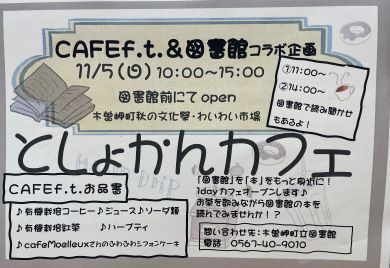 CAFEf.t.&図書館コラボ企画
11/5(日) 10:00~15:00
図書館前にてopen
木曽岬町秋の文化祭・わいわい市場
①11:00~
②14:00~
図書館で読み聞かせ
もあるよ!
としょかんカフェ
Hand Drip
CAFEf.t.お品書
♪有機栽培コーヒー♪ジュース♪ソーダ類
♪有機栽培紅茶 ♪ハーブティ
♪cafeMoelleuxさんのふわふわシフォンケーキ
「図書館」を「本」をもっと身近に!
1dayカフェオープンします♪
お茶を飲みながら図書館の本を
読んでみませんか!?
問い合わせ先:木曽岬町立図書館
電話 0567-40-9010